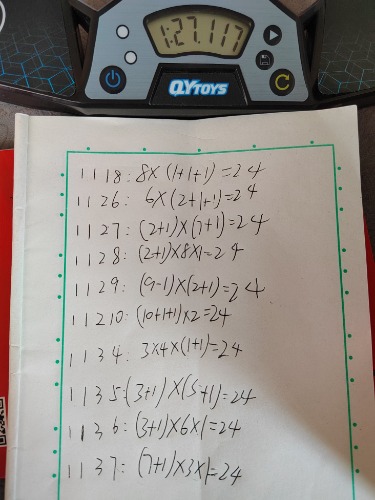 1:27.117
QYTOYS
1 1 1 8: 8×(1+1+1)=24
1 1 2 6: 6×(2+1+1)=24
1 1 2 7: (2+1)×(7+1)=24
1 1 2 8: (2+1)×8×1=24
1 1 2 9: (9-1)×(2+1)=24
1 1 2 10: (10+1+1)×2=24
1 1 3 4: 3×4×(1+1)=24
1 1 3 5: (3+1)×(5+1)=24
1 1 3 6: (3+1)×6×1=24
1 1 3 7: (7+1)×3×1=24